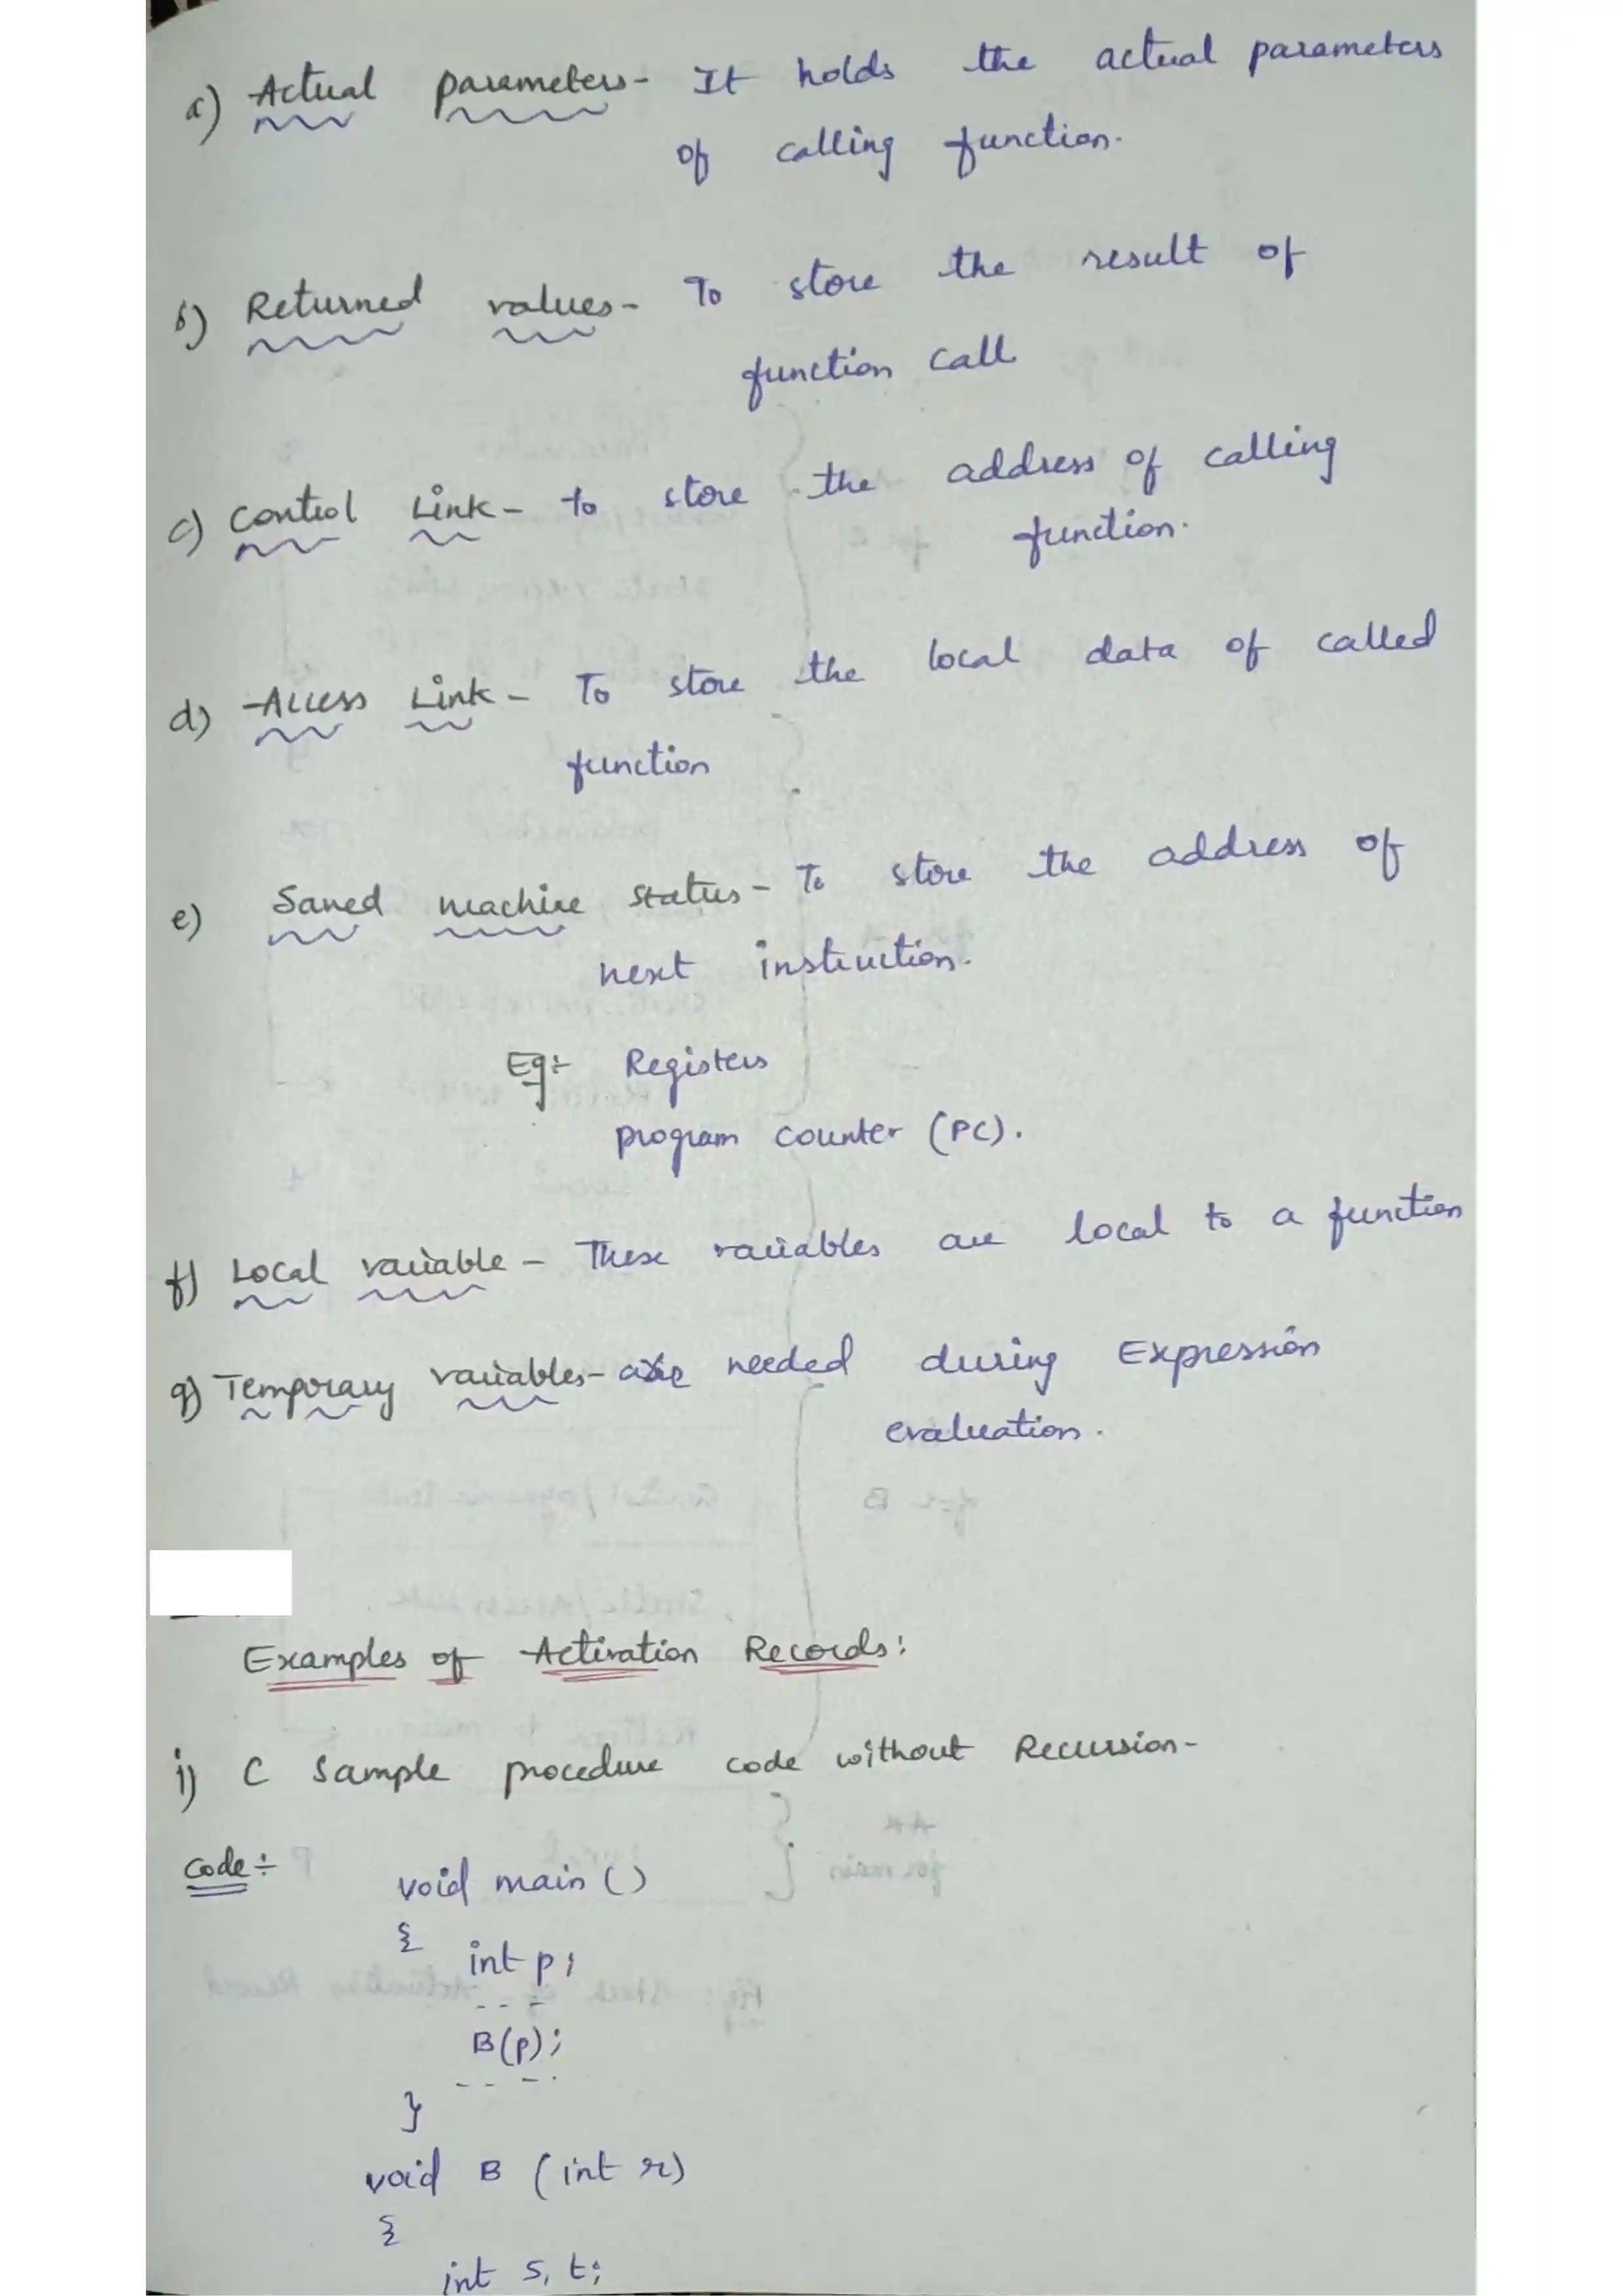 a) Actual parameters- It holds the actual parameters
of calling function.
b) Returned values- To store the result of
function call
c) Control Link- to store the address of calling
function.
d) Access Link- To store the local data of called
function
e) Saved machine status- To store the address of
next instruction.
Eg:- Registers
program counter (PC).
f) Local variable - These variables are local to a function
g) Temporary variables- are needed during Expression
evaluation.
Examples of Activation Records:
i) C Sample procedure code without Recursion-
Code:-
void main ()
{
int p;
- - -
B(p);
- - - -
}
void B (int r)
{
int s, t;